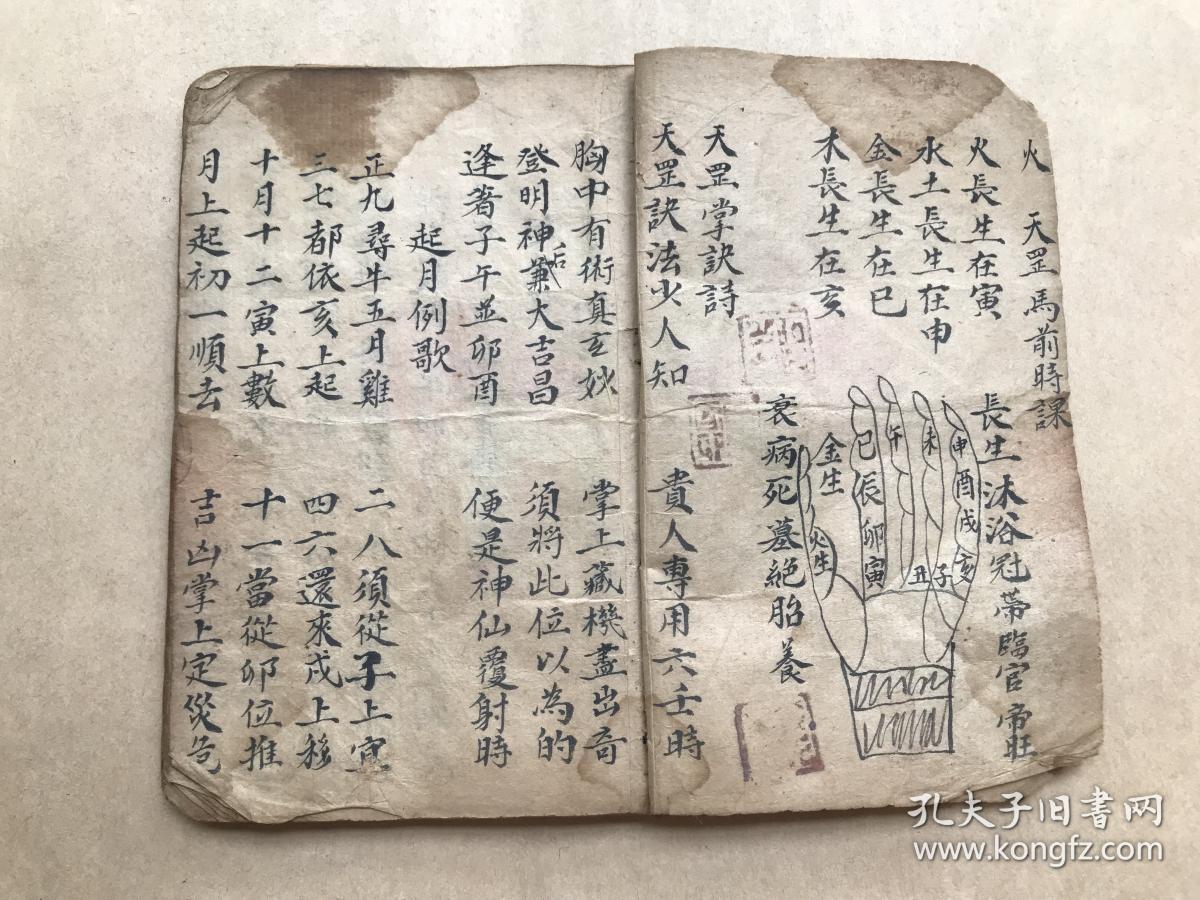 火　天罡馬前時課
火長生在寅
水土長生在申
金長生在巳
木長生在亥
長生沐浴冠帶臨官帝旺
衰病死墓絕胎養
金生
火生
巳辰卯寅
午
未
申酉戌亥
子
丑
天罡掌訣詩
天罡訣法少人知　貴人專用六壬時
胸中有術真玄妙　掌上藏機盡出奇
登明神后兼大吉昌　須將此位以為的
逢著子午並卯酉　便是神仙覆射時
起月例歌
正九尋牛五月雞　二八須從子上宜
三七都依亥上起　四六還來戌上移
十月十二寅上數　十一當從卯位推
月上起初一順去　吉凶掌上定災危
孔夫子旧书网
www.kongfz.com